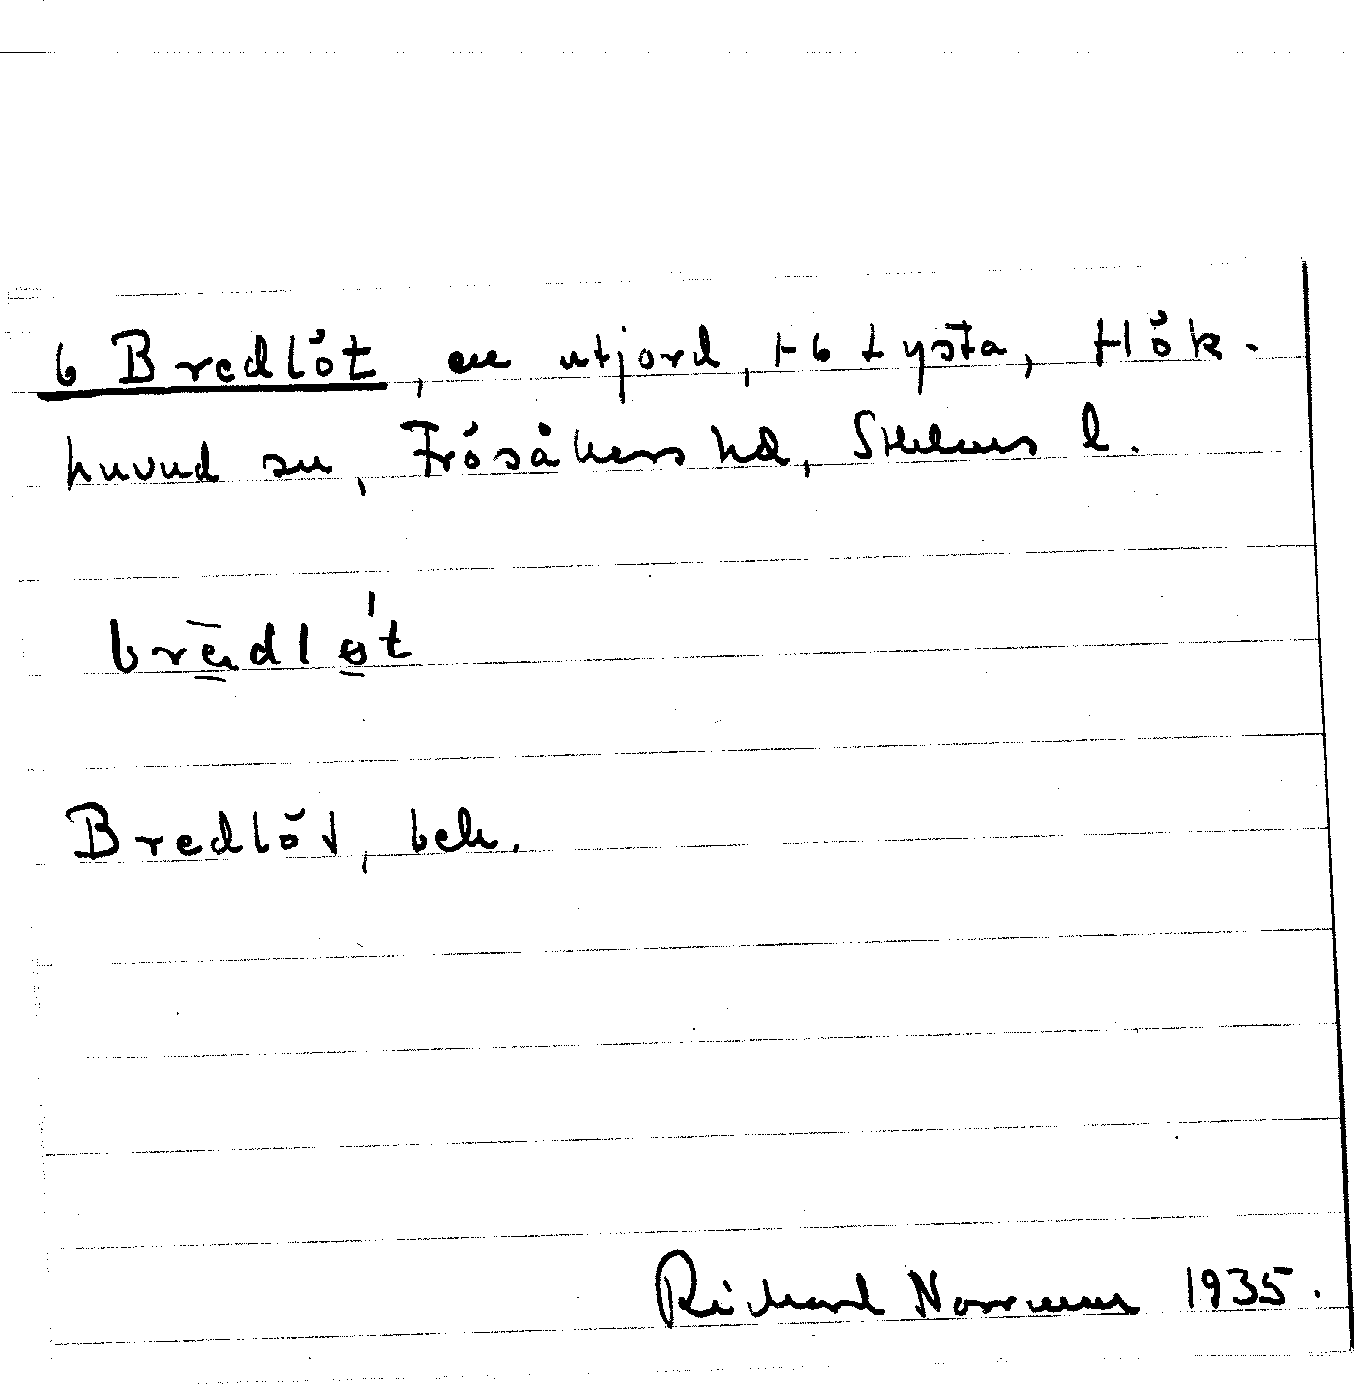 b Bredlöt, en utjord, t b Lysta, Hök-
huvud sn, Frösåkers hd, Sthlms l.
brēdlǿt
Bredlöt, bek.
Richard Norrman 1935.